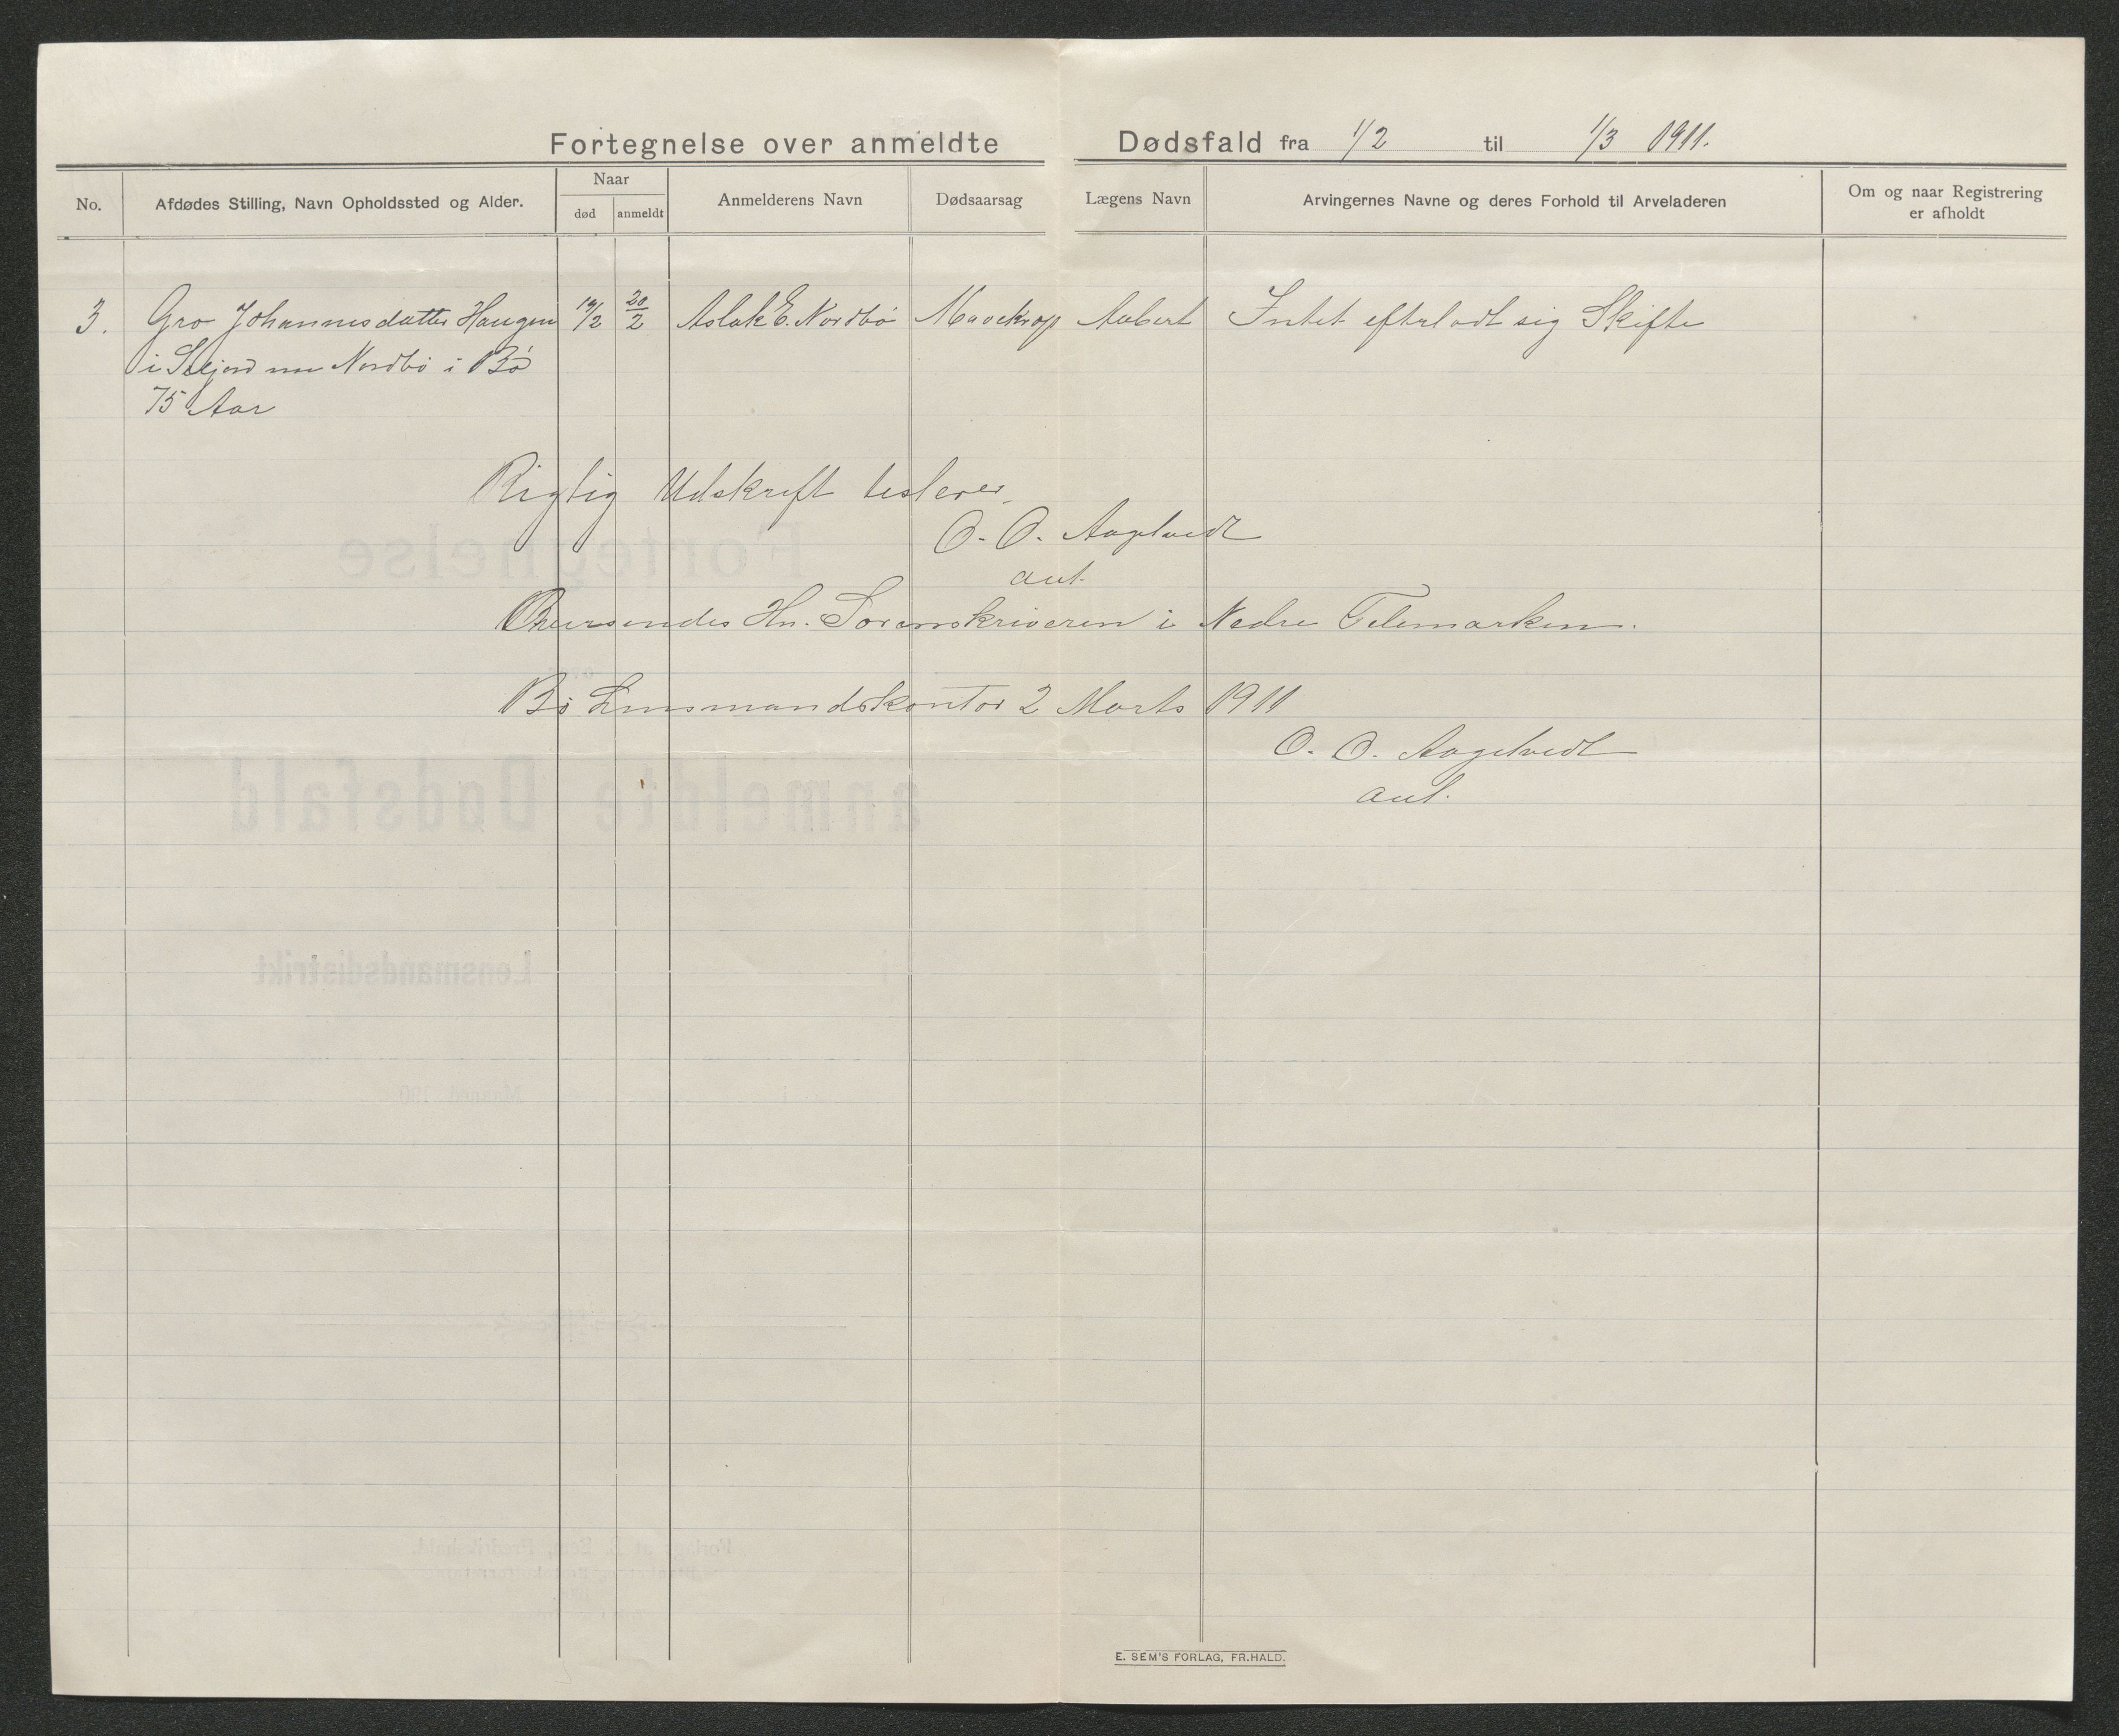 Fortegnelse over anmeldte Dødsfald fra 1/2 til 1/3 1911.
No.
Afdødes Stilling, Navn Opholdssted og Alder.
Naar
død
anmeldt
Anmelderens Navn
Dødsaarsag
Lægens Navn
Arvingernes Navne og deres Forhold til Arveladeren
Om og naar Registrering
er afholdt
3. Gro Johannesdatter Haugen 20/2 Aslak E. Nordbø Mavekræft Aubert Intet efterladt sig Skifte
i Seljord nu Nordbø i Bø
75 Aar
Rigtig Udskrift
O. O. Aagetvedt
aut.
Oversendes Hr. Sorenskriveren i Nedre Telemarken.
Bø Lensmandskontor 2 Marts 1911
O. O. Aagetvedt
aut.
E. SEM'S FORLAG, FR.HALD.